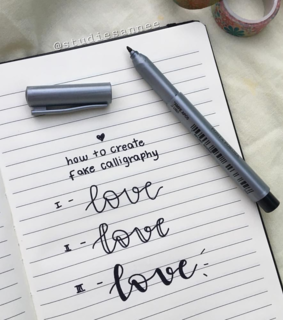 how to create
fake calligraphy
I - love
II - love
III - love